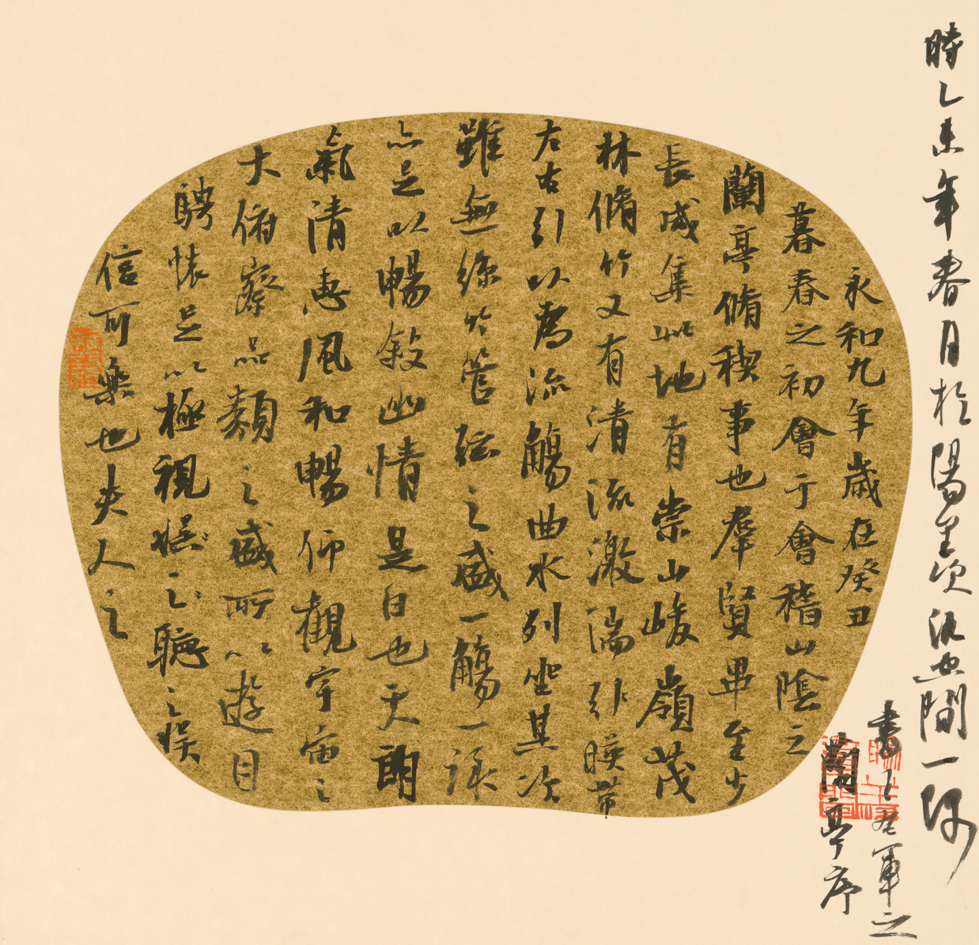 永和九年歲在癸丑
暮春之初會于會稽山陰之
蘭亭脩禊事也羣賢畢至少
長咸集此地有崇山峻嶺茂
林脩竹又有清流激湍暎帶
左右引以為流觴曲水列坐其次
雖無絲竹管弦之盛一觴一詠
亦足以暢敘幽情是日也天朗
氣清惠風和暢仰觀宇宙之
大俯察品類之盛所以遊目
騁懷足以極視娛之聽之娛
信可樂也夫人之
時乙未年春日於陽羨間一隅
書王右軍之
蘭亭序